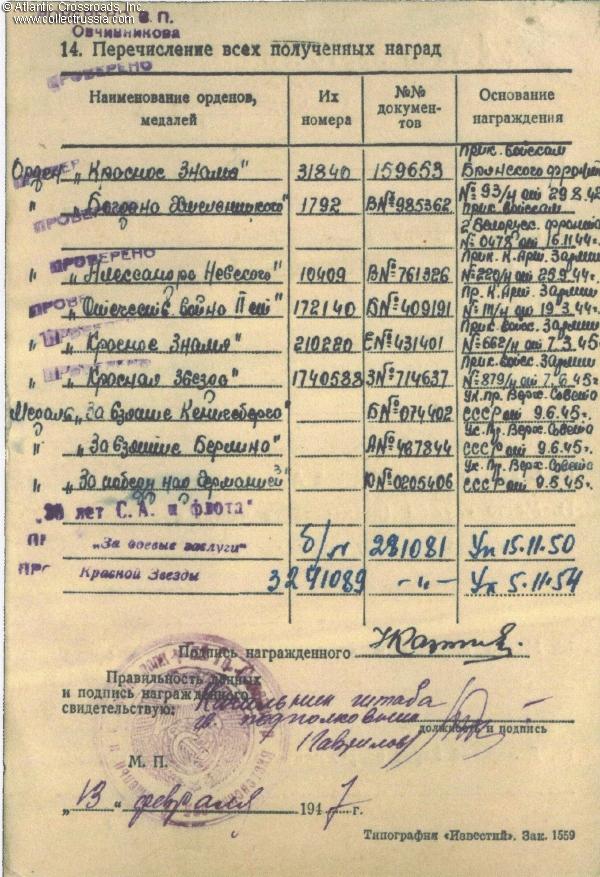 © Atlantic Crossroads, Inc.
www.collectrussia.com
В. П.
Овчинникова
14. Перечисление всех полученных наград
ПРОВЕРЕНО
Наименование орденов, медалей
Их номера
№№ документов
Основание награждения
Орден „Красное Знамя" 31840 159653 Прик. войскам Брянского фронта № 93/н от 29.8.42
" „Богдана Хмельницкого" 1792 В№985362 Прик. войскам 2 Белорус. фронта № 0478 от 16.11.44г.
ПРОВЕРЕНО
" „Александра Невского" 10409 В№761326 Прик. К. Арт. 3 армии №220/н от 25.9.44г.
" „Отечеств. война II ст" 172140 Б№409191 Пр. К. Арт. 3 армии № 111/н от 19.3.44г.
" „Красное Знамя" 210220 Е№431401 Прик. войск. 3 армии №662/н от 7.3.45г.
" „Красная Звезда" 1740588 З№714637 Прик. войск. 3 армии №879/н от 7.6.45г.
Медаль „За взятие Кенигсберга" Б№074402 Ук. Пр. Верх. Совета СССР от 9.6.45г.
" „За взятие Берлина" А№487844 Ук. Пр. Верх. Совета СССР от 9.6.45г.
" „За победу над Германией" Ю№0205406 Ук. Пр. Верх. Совета СССР от 9.5.45г.
„30 лет С. А. и флота"
„За боевые заслуги" б/н 281081 Ук 15.11.50
Красной Звезды 3271089 -"- Ук 5.11.54
Подпись награжденного
Правильность данных
и подпись награжденного
свидетельствую: Начальник штаба
гв. подполковник
Гаврилов
должность и подпись
М. П.
„13" февраля 1947 г.
Типография «Известий». Зак. 1559